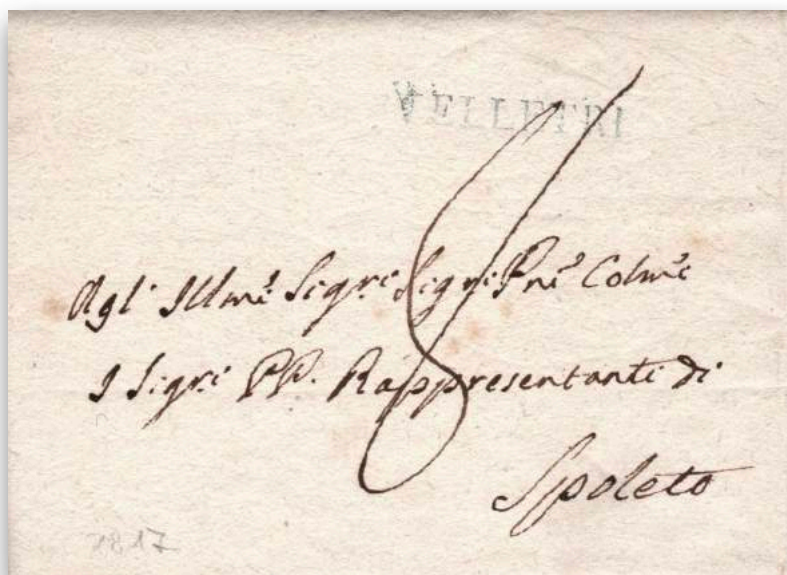 VELLETRI
8
Agli Illmi Sigri Sigri Pni Colmi
I Sigri PP. Rappresentanti di
Spoleto
1817